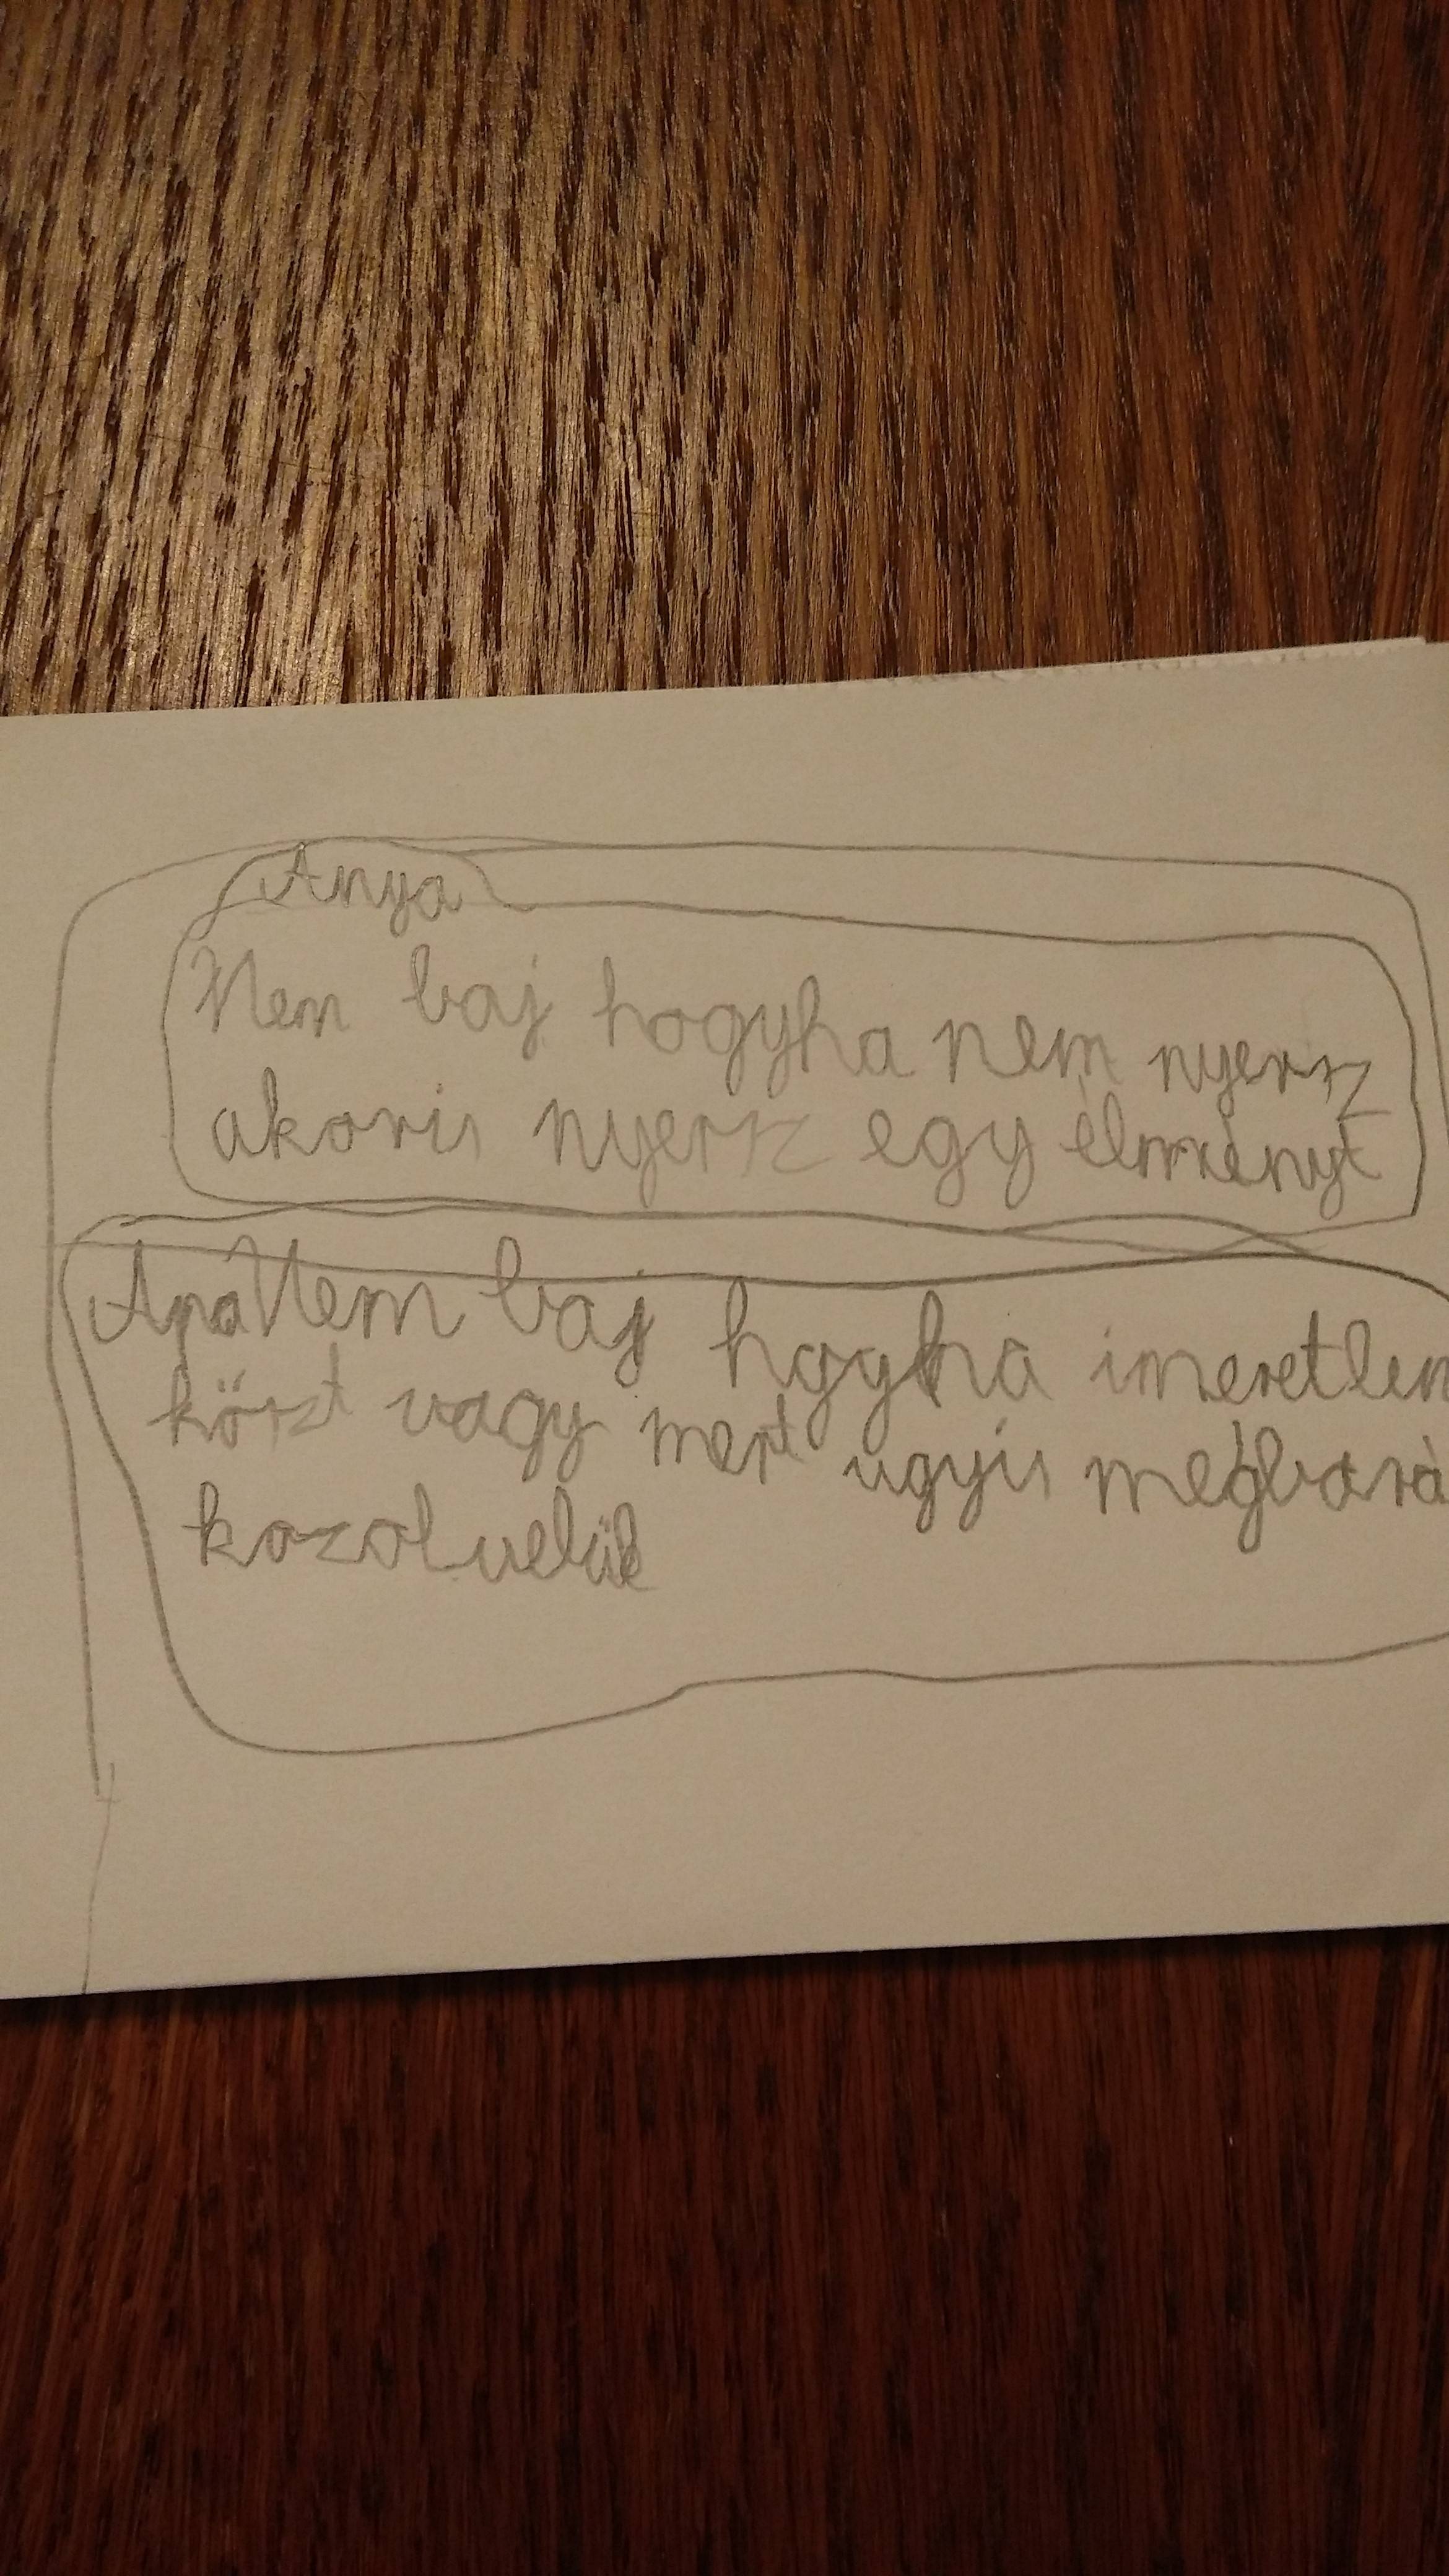 Anya
Nem baj hogyha nem nyersz
akoris nyersz egy élményt
Apa Nem baj hgyha imeretlen
köszt vagy mert ugyis megbará
kozol velük